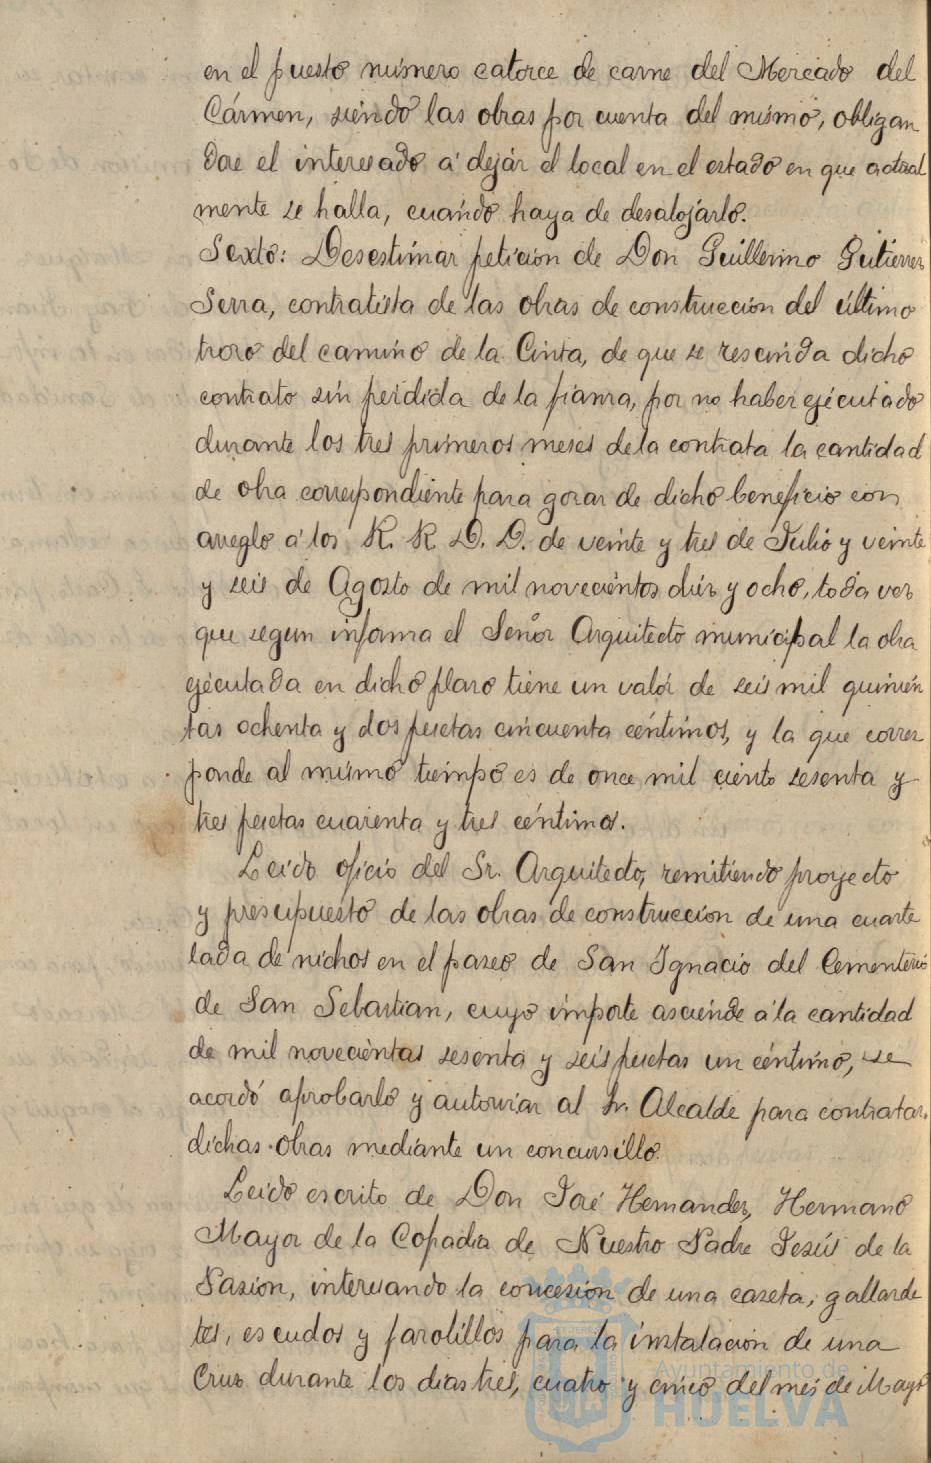 en el puesto número catorce de carne del Mercado del
Cármen, siendo las obras por cuenta del mismo, obligan
dose el interesado á dejár el local en el estado en que actual
mente se halla, cuando haya de desalojárlo.
Sexto: Desestimar petición de Don Guillermo Gutierrez
Serra, contratista de las obras de construcción del último
trozo del camino de la Cinta, de que se rescinda dicho
contrato sin perdida de la fianza, por no haber ejécutado
durante los tres primeros meses de la contrata la cantidad
de obra correspondiente para gozar de dicho beneficio con
arreglo á los R. R. D. D. de veinte y tres de Julio y veinte
y seis de Agosto de mil novecientos diez y ocho, toda vez
que segun informa el Señor Arquitecto municipal la obra
ejécutada en dicho plazo tiene un valór de seis mil quinien
tas ochenta y dos pesetas cincuenta céntimos, y la que corres
ponde al mismo tiempo es de once mil ciento sesenta y
tres pesetas cuarenta y tres céntimos.
Leido oficio del Sr. Arquitecto, remitiendo proyecto
y presupuesto de las obras de construccion de una cuarte
lada de nichos en el paseo de San Ignacio del Cementerio
de San Sebastian, cuyo importe asciende á la cantidad
de mil novecientas sesenta y seis pesetas un céntimo, se
acordó aprobarlo y autorizar al Sr. Alcalde para contratar
dichas obras mediante un concursillo.
Leido escrito de Don José Hernandez, Hermano
Mayor de la Cofadia de Nuestro Padre Jesús de la
Pasion, interesando la concesión de una caseta, gallarde
tes, escudos y farolillos para la instalación de una
Cruz durante los dias tres, cuatro y cinco del mes de Mayo
Ayuntamiento de
HUELVA